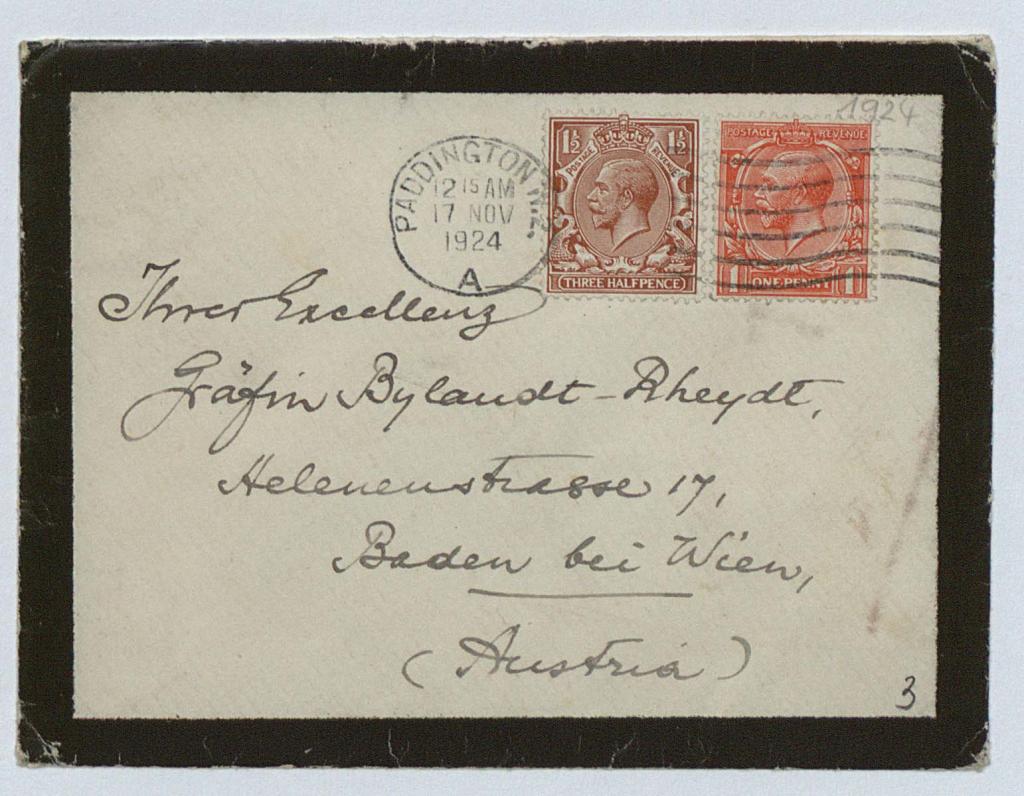 1924
PADDINGTON W.2.
12 15 AM
17 NOV
1924
A
1½ 1½
POSTAGE REVENUE
THREE HALFPENCE
POSTAGE REVENUE
1 ONE PENNY 1
Ihrer Excellenz
Gräfin Bylandt-Rheydt,
Helenenstrasse 17,
Baden bei Wien,
(Austria)
3